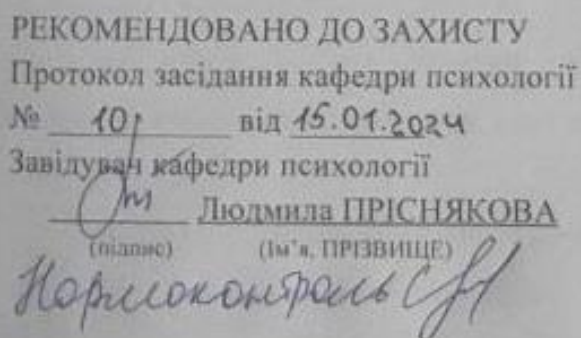 РЕКОМЕНДОВАНО ДО ЗАХИСТУ
Протокол засідання кафедри психології
№ 10 від 15.01.2024
Завідувач кафедри психології
Людмила ПРІСНЯКОВА
(підпис) (Ім’я, ПРІЗВИЩЕ)
Нормоконтроль